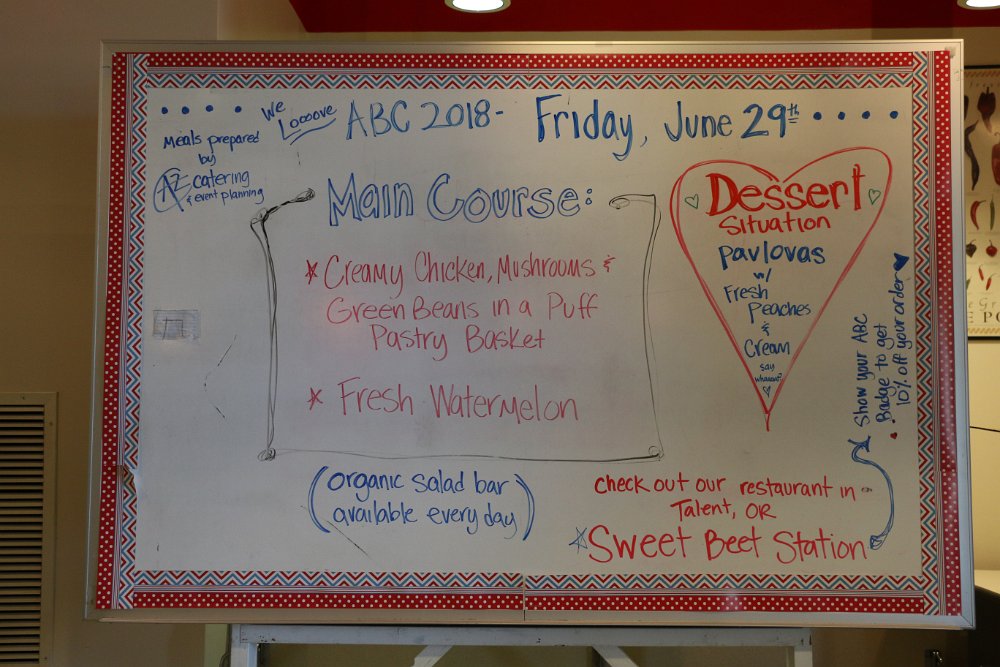 We
Looove
ABC 2018- Friday, June 29th
Meals prepared
by
AZ catering
& event planning
Main Course:
* Creamy Chicken, Mushrooms &
Green Beans in a Puff
Pastry Basket
* Fresh Watermelon
(organic salad bar
available every day)
Dessert
Situation
pavlovas
w/
Fresh
Peaches
&
Cream
say
whaaat?
check out our restaurant in
Talent, OR
Sweet Beet Station
Show your ABC
Badge to get
10% off your order